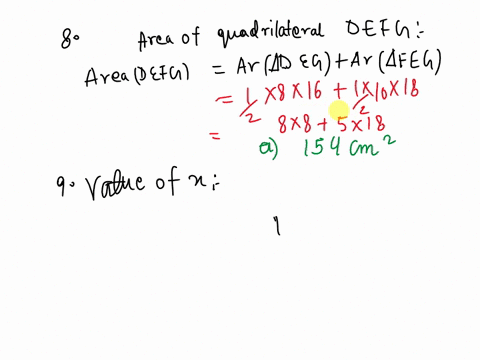 8. Area of quadrilateral DEFG:-
Area(DEFG) = Ar(ΔDEG) + Ar(ΔFEG)
= 1/2 × 8 × 16 + 1/2 × 10 × 18
= 8 × 8 + 5 × 18
a) 154 cm²
9. Value of x:-
1